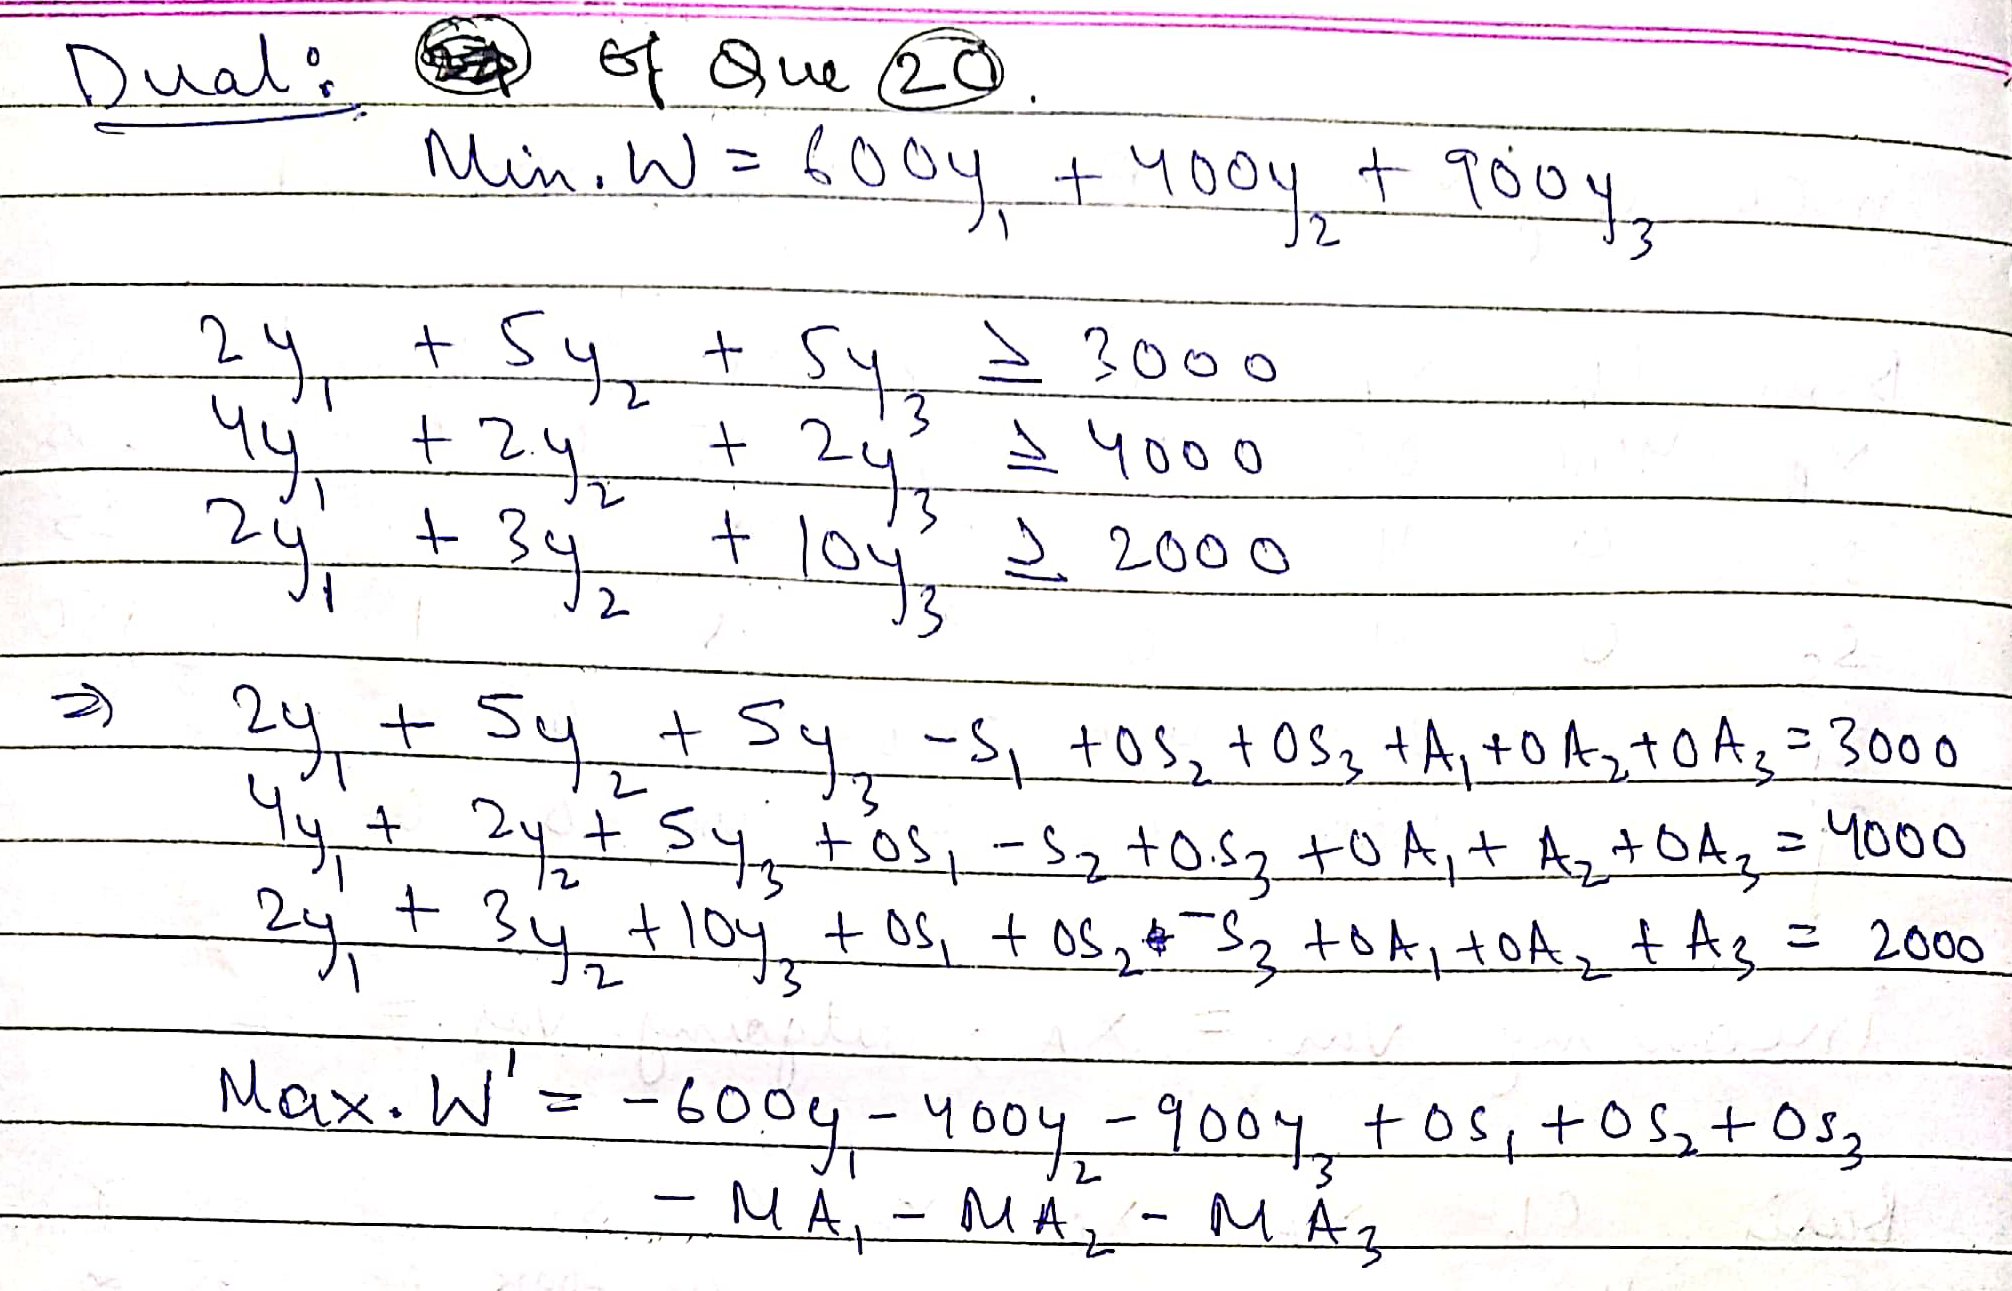 Dual: of Que 20.
Min. W = 600y₁ + 400y₂ + 900y₃
2y₁ + 5y₂ + 5y₃ ≥ 3000
4y₁ + 2y₂ + 2y₃ ≥ 4000
2y₁ + 3y₂ + 10y₃ ≥ 2000
⇒ 2y₁ + 5y₂ + 5y₃ - S₁ + 0S₂ + 0S₃ + A₁ + 0A₂ + 0A₃ = 3000
4y₁ + 2y₂ + 5y₃ + 0S₁ - S₂ + 0.S₃ + 0A₁ + A₂ + 0A₃ = 4000
2y₁ + 3y₂ + 10y₃ + 0S₁ + 0S₂ - S₃ + 0A₁ + 0A₂ + A₃ = 2000
Max. W' = -600y₁ - 400y₂ - 900y₃ + 0S₁ + 0S₂ + 0S₃
- MA₁ - MA₂ - MA₃